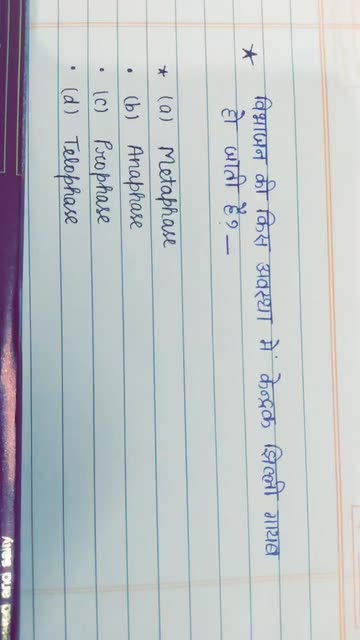 ★ विभाजन की किस अवस्था में केन्द्रक झिल्ली गायब
हो जाती है? —
* (a) Metaphase
• (b) Anaphase
• (c) Prophase
• (d) Telophase